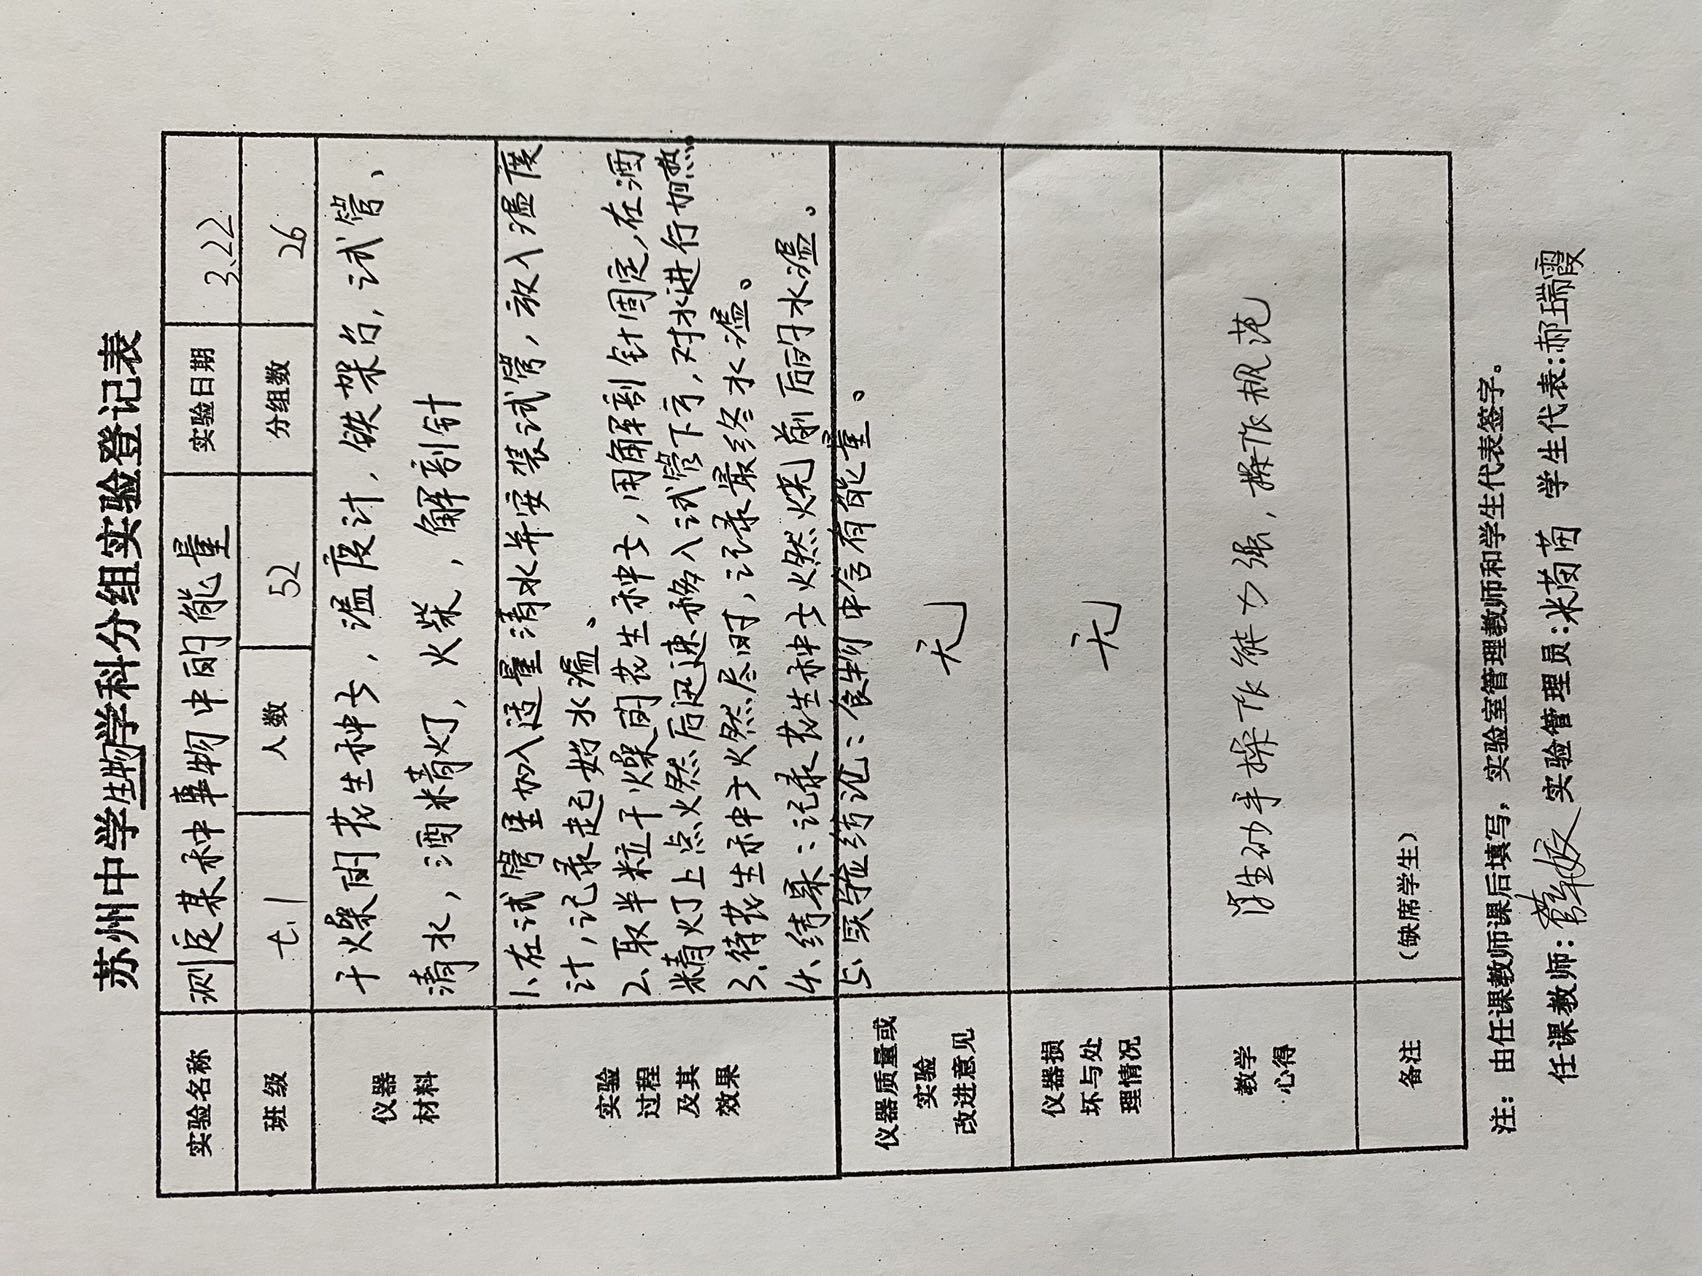 苏州中学生物学科分组实验登记表
实验名称 测定某种事物中的能量 实验日期 3.22
班级 七.1 人数 52 分组数 26
仪器
材料
干燥的花生种子，温度计，铁架台，试管、
清水，酒精灯，火柴，解剖针
实验
过程
及其
效果
1、在试管里加入适量清水并安装试管，放入温度
计，记录起始水温。
2、取半粒干燥的花生种子，用解剖针固定，在酒
精灯上点火然后迅速移入试管下方，对水进行加热
3、待花生种子火燃尽时，记录最终水温。
4、结果：记录花生种子火燃烧前后的水温。
5、实验结论：食物中含有能量。
仪器质量或
实验
改进意见
无
仪器损
坏与处
理情况
无
教学
心得
学生动手操作能力强，操作规范
备注
（缺席学生）
注： 由任课教师课后填写，实验室管理教师和学生代表签字。
任课教师： 实验管理员：米茵茵 学生代表：郝瑞霞